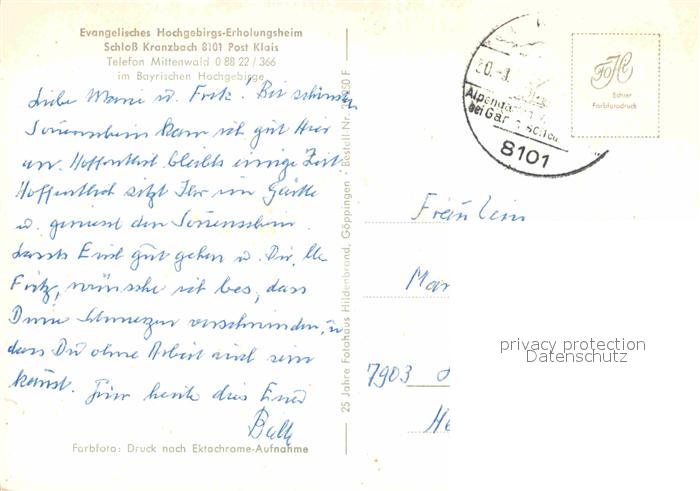 Evangelisches Hochgebirgs-Erholungsheim
Schloß Kranzbach 8101 Post Klais
Telefon Mittenwald 0 88 22 / 366
im Bayrischen Hochgebirge
Liebe Marie u. Fritz! Bei schönsten
Sonnenschein kam ich gut hier
an. Hoffentlich bleibts einige Zeit
Hoffentlich sitzt Ihr im Gärtle
u. geniest den Sonnenschein.
Lassts Euch gut gehen u. Dir, lb.
Fritz, wünsche ich bes, dass
Deine Schmerzen verschwinden, u
dass Du ohne Arbeit auch sein
kannst. Für heute dies Eure
Farbfoto: Druck nach Ektachrome-Aufnahme
25 Jahre Fotohaus Hildenbrand, Göppingen · Bestell Nr.
8101
FoHi
Echter
Farbfotodruck
Fräulein
Mar
7903
He
privacy protection
Datenschutz